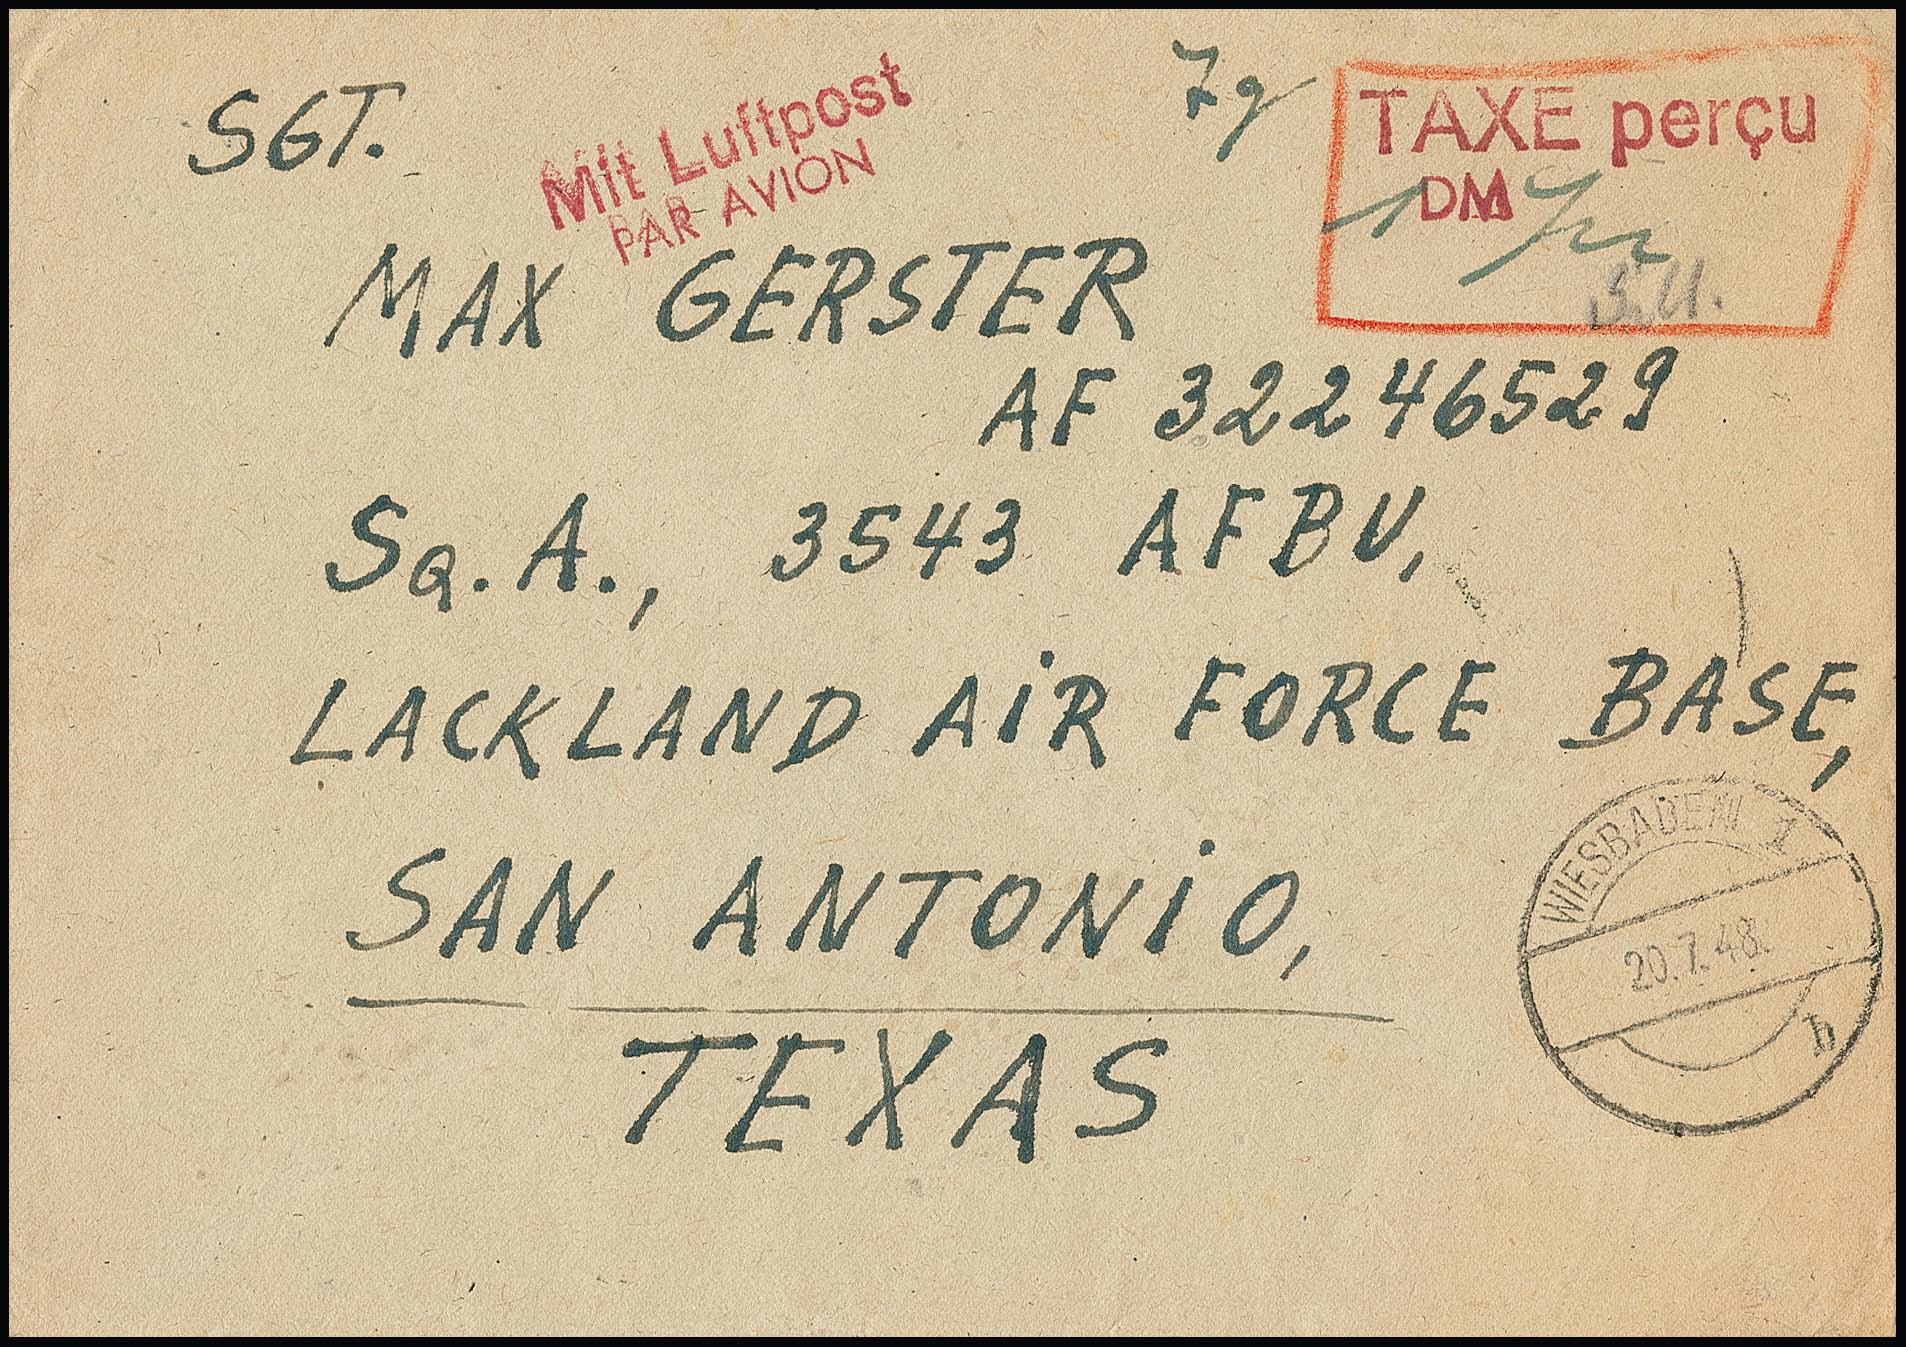 SGT.
Mit Luftpost
PAR AVION
7g
TAXE perçu
1 DM
MAX GERSTER
AF 32246529
SQ. A., 3543 AFBU,
LACKLAND AiR FORCE BASE,
SAN ANTONiO,
TEXAS
WIESBADEN 1
20.7.48.
b